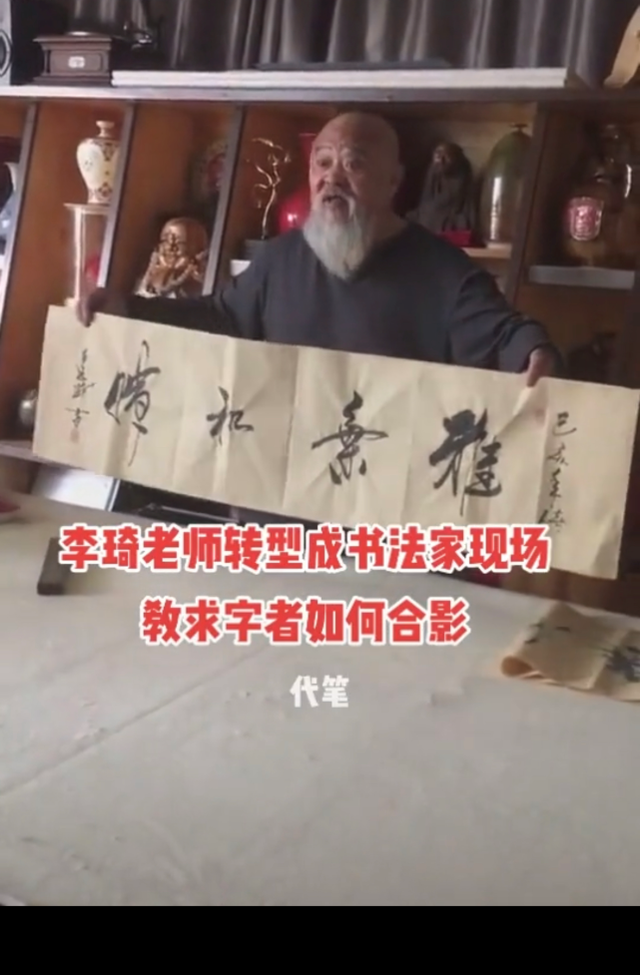 己亥
雅 和
李琦老师转型成书法家现场
教求字者如何合影
代笔